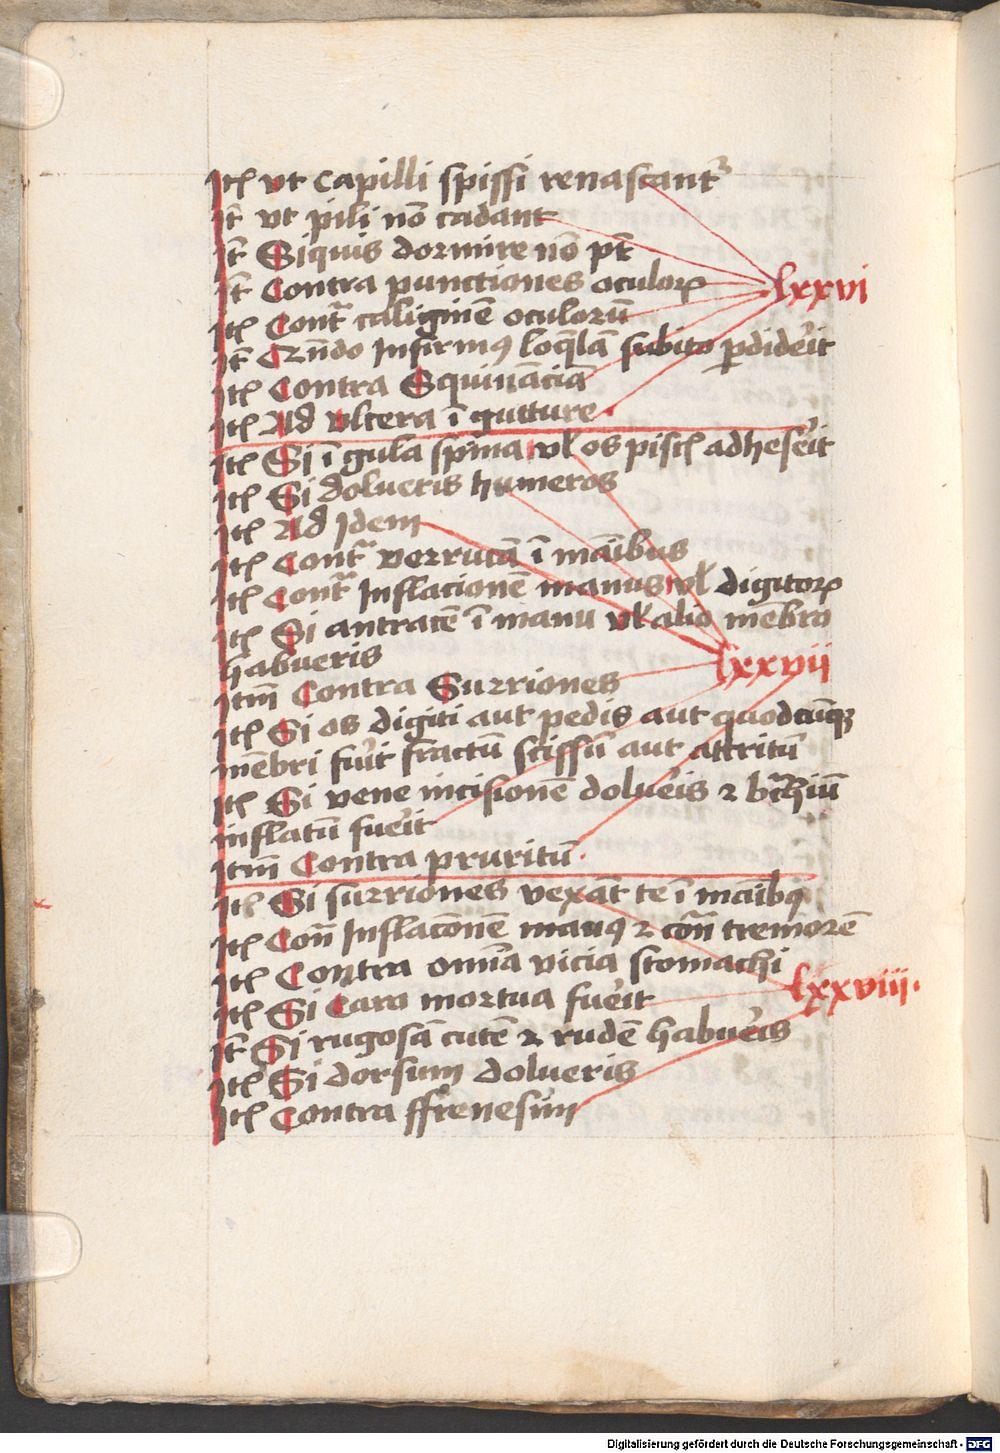 Itꝫ vt capilli spissi renascantᷣ
It̄ vt pili nō cadant
It̄ Siquis dormire nō pt̄
It̄ Contra punctiones oculoꝝ
lxxvi
Itꝫ Contᷓ caliginē oculorū
It̄ Qn̄do Infirmꝰ loq̄lā subito ꝑdideᷣit
Itꝫ Contra Squinācīā
Itꝫ Ad vlcera ī gutture
Itꝫ Si ī gula spina vł os piscꝭ adheseᷣit
Itꝫ Si dolueris humeros
Itꝫ Ad Idem
Itꝫ Contᷓ verrucā ī māibus
Itꝫ Contᷓ Inflacionē manus vł digitoꝝ
Itꝫ Si antracē ī manu vł alio mēbro
habueris
lxxvii
Itm̄ Contra Surriones
Itꝫ Si os digiti aut pedis aut quodcūqꝫ
mēbri fuᷣit fractū scissū aut attritū
Itꝫ Si vene incisionē doluᷣeis ⁊ bᷓchiū
inflatū fueᷣit
Itm̄ Contra pruritū
Itꝫ Si surriones vexāt te ī māibꝰ
Itꝫ Con̄ Inflacōnē manꝰ ⁊ con̄ tremorē
Itꝫ Contra omīa vicia stomachi
lxxviii.
Itꝫ Si Caro mortua fueᷣit
It̄ Si rugosā cutē ⁊ rudē habueᷣis
Itꝫ Si dorsum dolueris
Itꝫ Contra ffrenesim
Digitalisierung gefördert durch die Deutsche Forschungsgemeinschaft - DFG